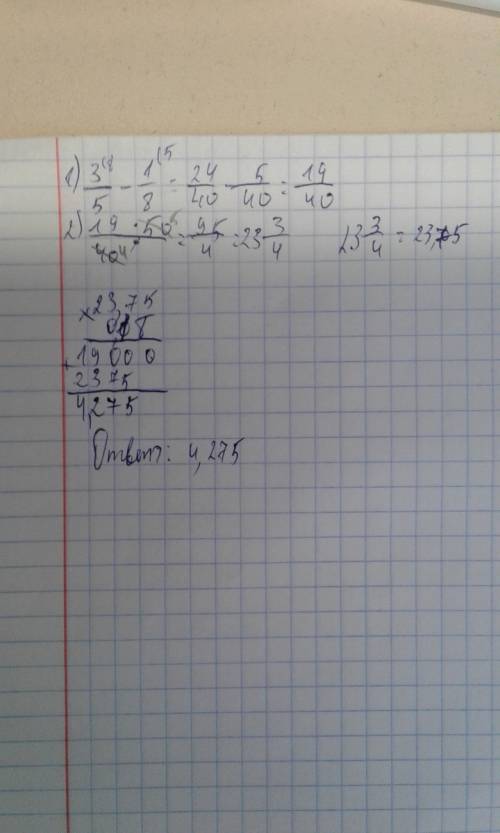 1) 3(8/5 - 1(5/8 = 24/40 - 5/40 = 19/40
2) 19 · 50⁵/40₄ = 95/4 = 23 3/4 23 3/4 = 23,75
× 23,75
0,18
+ 19000
2375
4,275
Ответ: 4,275